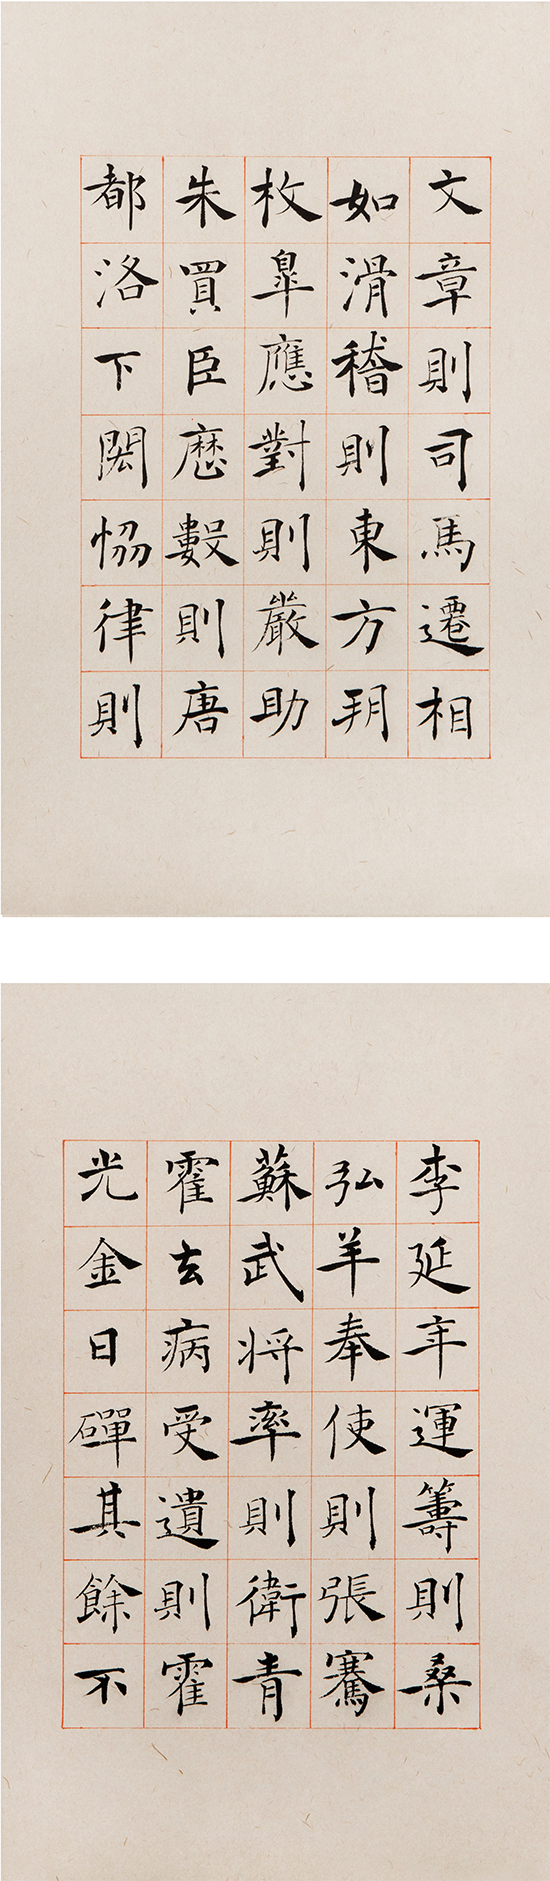 文章則司馬遷相
如滑稽則東方朔
枚皐應對則嚴助
朱買臣歷數則唐
都洛下閎恊律則
李延年運籌則桑
弘羊奉使則張騫
蘇武将率則衛青
霍去病受遺則霍
光金日磾其餘不